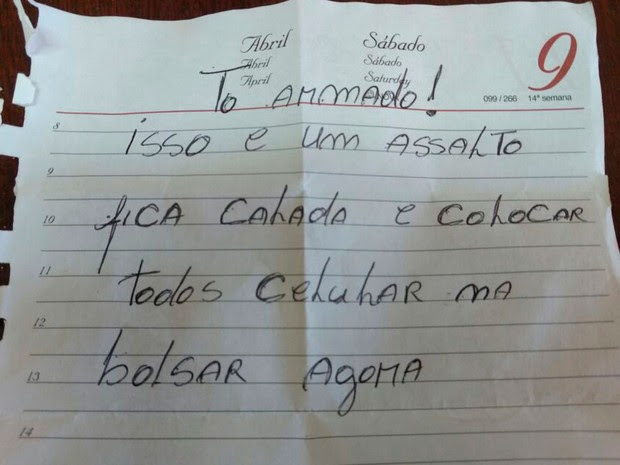 Abril
Abril
April
Sábado
Sábado
Saturday
9
099 / 266 14ª semana
To ARMADO!
8
isso e um ASSALTO
9
10
fICA CALADA e COLOCAR
11
todos CELULAR NA
12
13
bolSAR AgORA
14